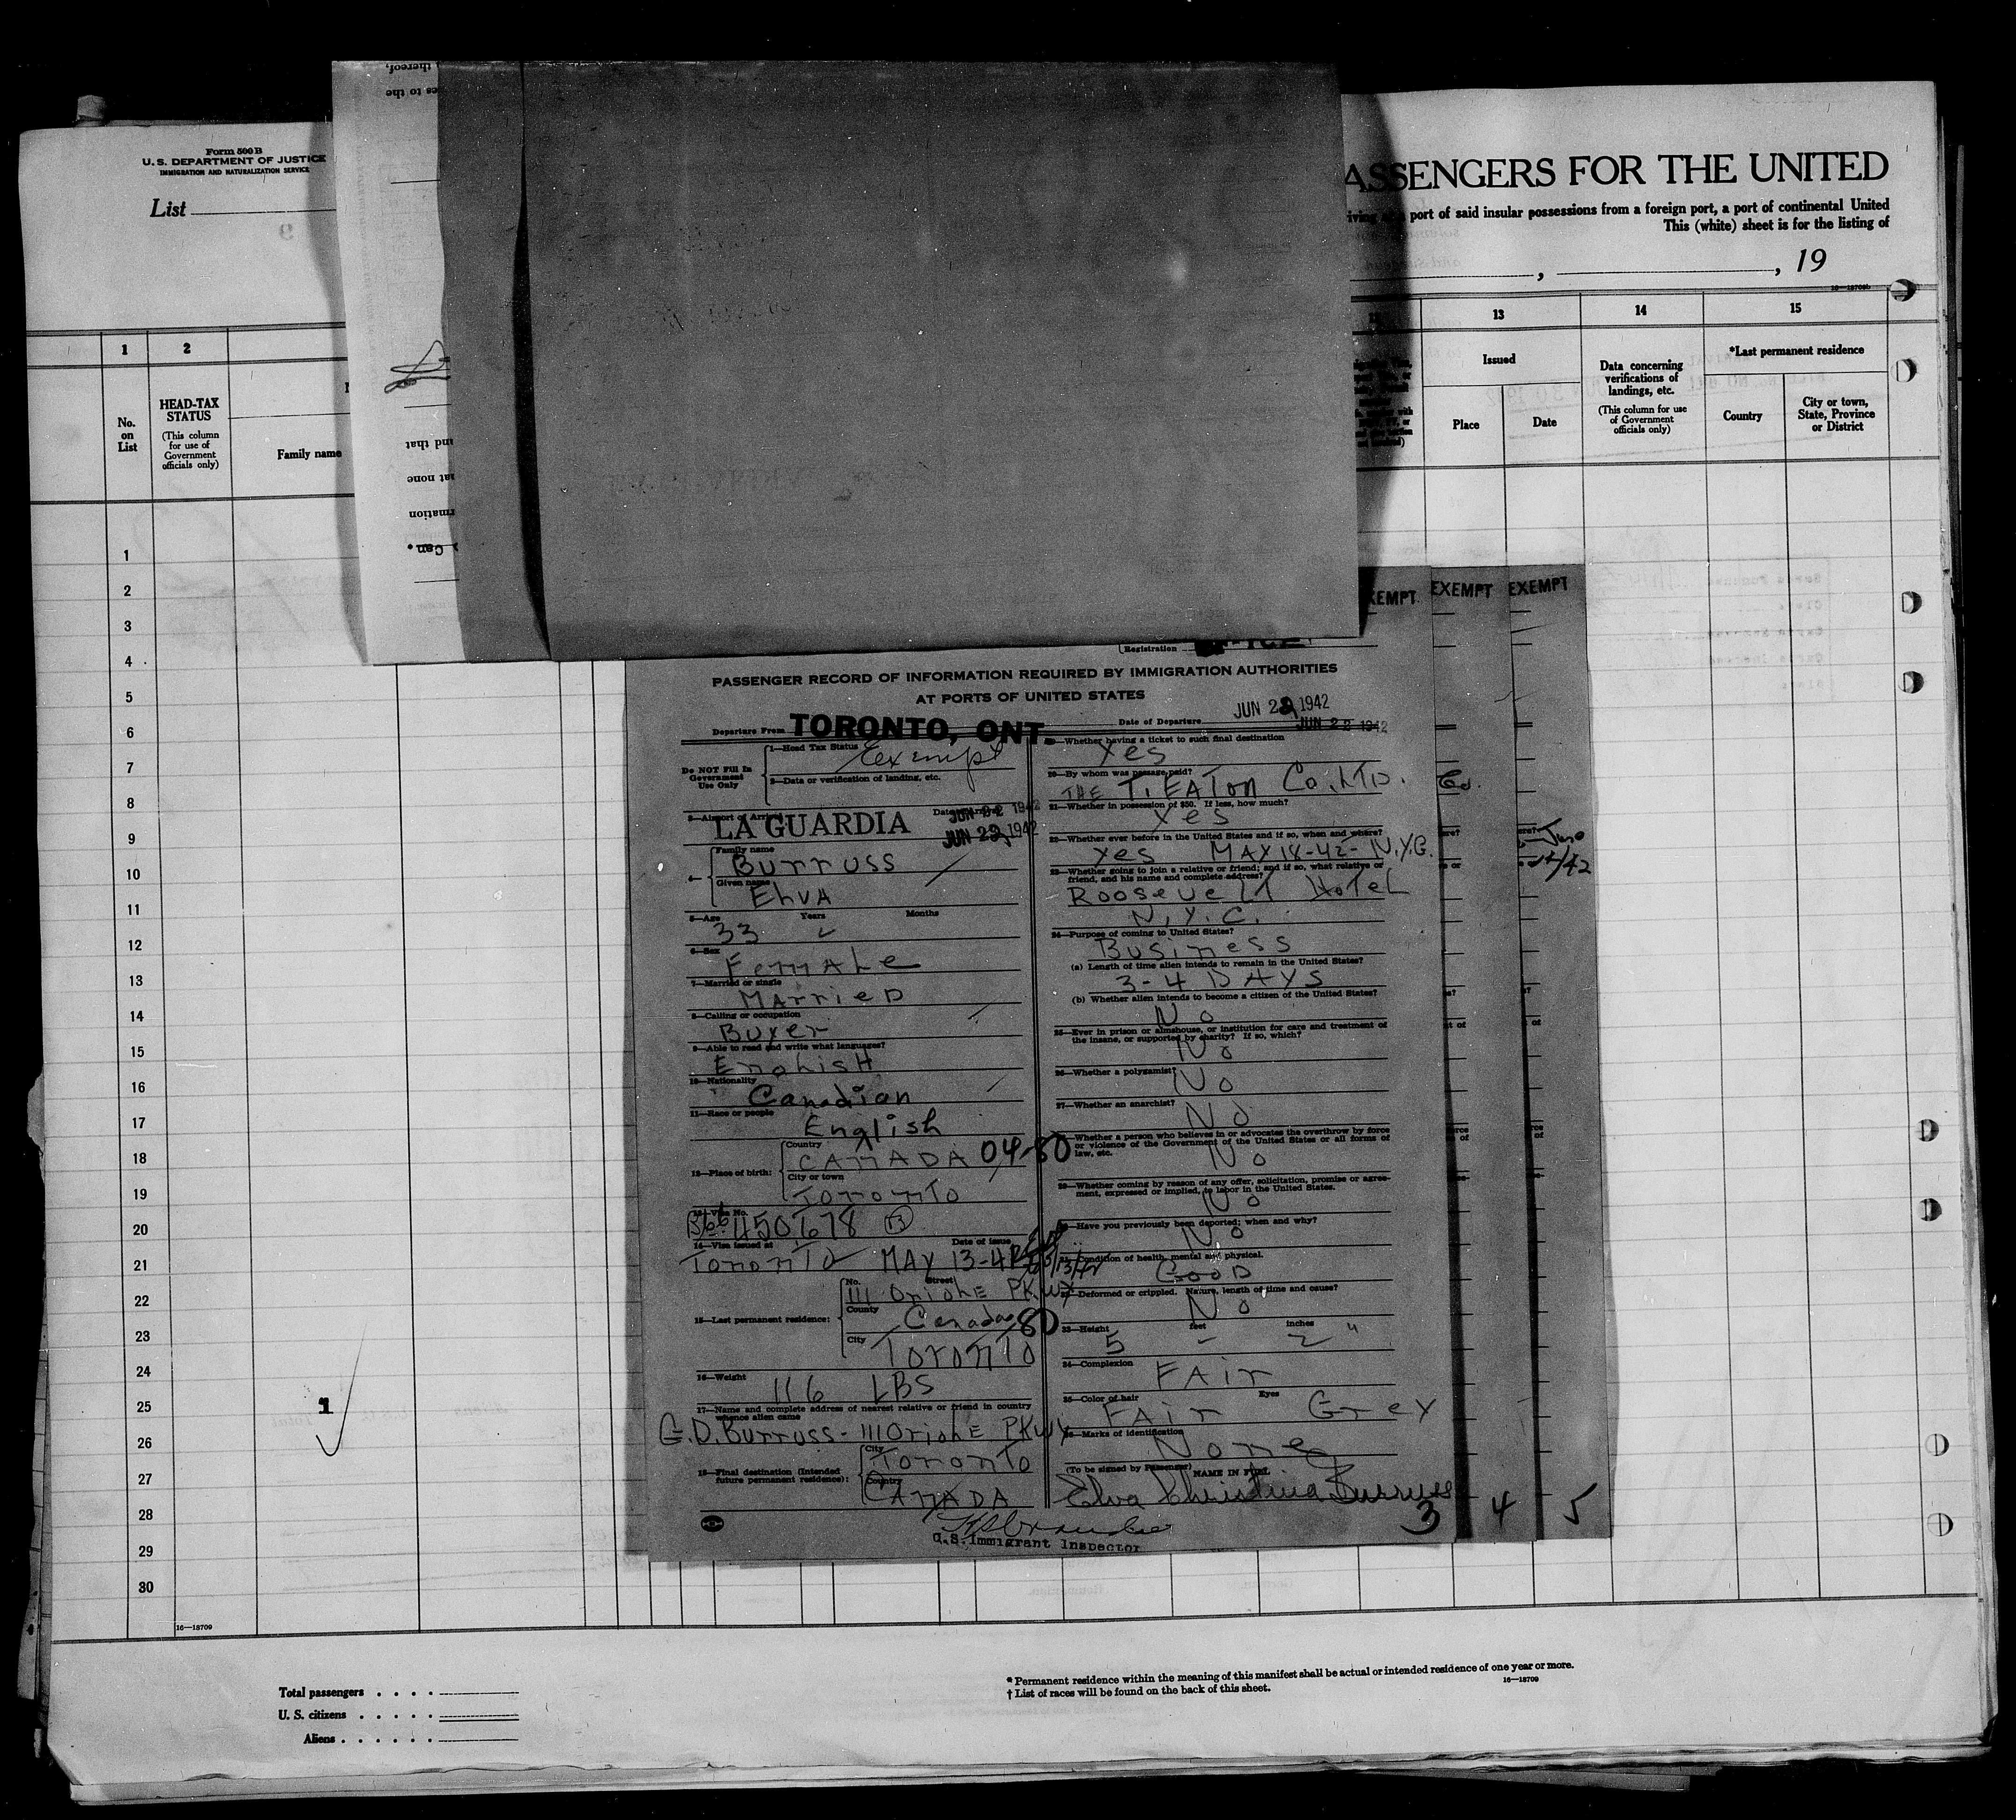 Form 500 B
U. S. DEPARTMENT OF JUSTICE
IMMIGRATION AND NATURALIZATION SERVICE
List
ASSENGERS FOR THE UNITED
port of said insular possessions from a foreign port, a port of continental United
This (white) sheet is for the listing of
, , 19
16—18709
1 2 13 14 15
No. on List
HEAD-TAX STATUS
(This column for use of Government officials only)
Family name
Issued
Place
Date
Data concerning verifications of landings, etc.
(This column for use of Government officials only)
*Last permanent residence
Country
City or town, State, Province or District
thereof,
es to the
and that
at none
rmation
Can.
1
2
3
4
5
6
7
8
9
10
11
12
13
14
15
16
17
18
19
20
21
22
23
24
25
26
27
28
29
30
1
EXEMPT EXEMPT EXEMPT
Registration
PASSENGER RECORD OF INFORMATION REQUIRED BY IMMIGRATION AUTHORITIES
AT PORTS OF UNITED STATES
Departure From TORONTO, ONT.
Date of Departure JUN 22 1942
JUN 22 1942
Do NOT Fill In Government Use Only
1—Head Tax Status Exempt
2—Data or verification of landing, etc.
3—Airport of Arrival LA GUARDIA
JUN 22 1942
JUN 22 1942
4—
Family name Burruss
Given name ELVA
5—Age 33 Years Months
6—Sex Female
7—Married or single Married
8—Calling or occupation Buyer
9—Able to read and write what languages? English
10—Nationality Canadian
11—Race or people English
12—Place of birth:
Country CANADA 04-80
City or town Toronto
13—Visa No. 450678 B
14—Visa issued at Toronto Date of issue MAY 13-42
15—Last permanent residence:
No. Street 111 Oriole PKWY
County Canada 80
City Toronto
16—Weight 116 LBS
17—Name and complete address of nearest relative or friend in country whence alien came
G.D. Burruss - 111 Oriole PKWY
18—Final destination (Intended future permanent residence):
City Toronto
Country CANADA
19—Whether having a ticket to such final destination
Yes
20—By whom was passage paid?
THE T. EATON Co. LTD.
21—Whether in possession of $50. If less, how much?
Yes
22—Whether ever before in the United States and if so, when and where?
Yes MAY 18-42- N.Y.C.
23—Whether going to join a relative or friend; and if so, what relative or friend, and his name and complete address?
Roosevelt Hotel
N.Y.C.
24—Purpose of coming to United States?
Business
(a) Length of time alien intends to remain in the United States?
3-4 DAYS
(b) Whether alien intends to become a citizen of the United States?
No
25—Ever in prison or almshouse, or institution for care and treatment of the insane, or supported by charity? If so, which?
No
26—Whether a polygamist? No
27—Whether an anarchist? No
28—Whether a person who believes in or advocates the overthrow by force or violence of the Government of the United States or all forms of law, etc.
No
29—Whether coming by reason of any offer, solicitation, promise or agreement, expressed or implied, to labor in the United States.
No
30—Have you previously been deported; when and why?
No
31—Condition of health, mental and physical.
Good
32—Deformed or crippled. Nature, length of time and cause?
No
33—Height 5 feet - 2 inches "
34—Complexion FAir
35—Color of hair FAir Eyes Grey
36—Marks of identification None
(To be signed by Passenger) NAME IN FULL
Elva Christina Burruss
U.S. Immigrant Inspector
3 4 5
16—18709
Total passengers
U. S. citizens
Aliens
* Permanent residence within the meaning of this manifest shall be actual or intended residence of one year or more.
† List of races will be found on the back of this sheet.
16—18709